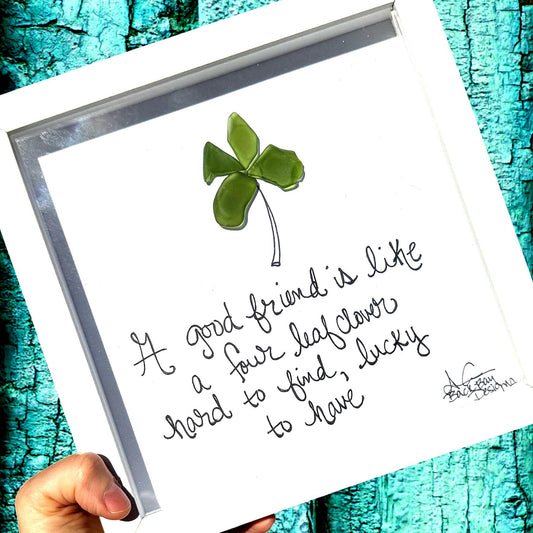 A good friend is like
a four leaf clover
hard to find, lucky
to have
Back Bay
Designs